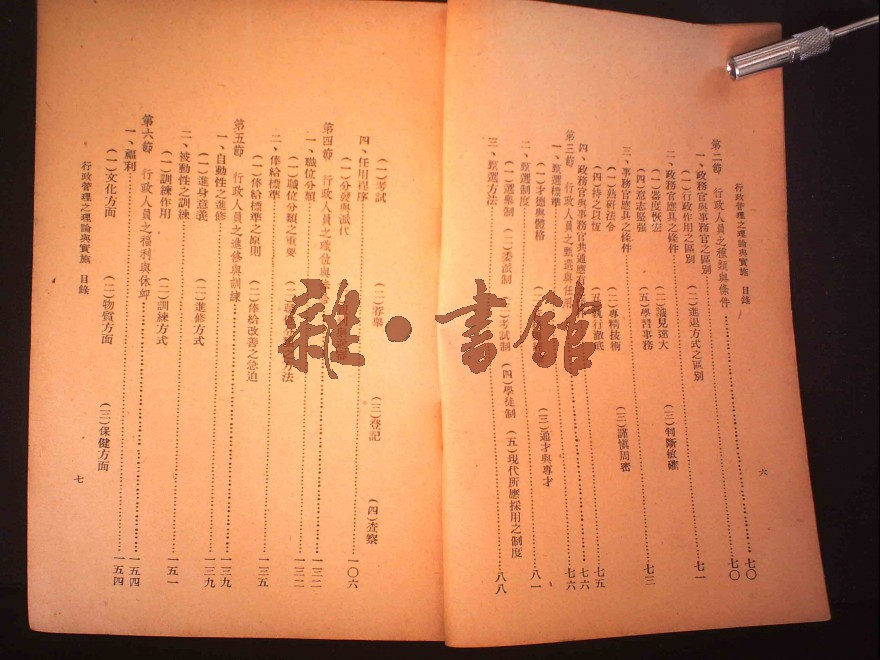 行政管理之理論與實施 目錄
六
第二節 行政人員之種類與條件……七〇
一、政務官與事務官之區別……七〇
(一)行政作用之區別 (二)進退方式之區別
二、政務官應具之條件……七一
(一)器度恢宏 (二)識見遠大 (三)判斷敏確
(四)意志堅强 (五)學習事務
三、事務官應具之條件……七三
(一)熟研法令 (二)專精技術 (三)謹慎周密
(四)持之以恆 (五)執行澈底
四、政務官與事務官共通應……七五
第三節 行政人員之甄選與任用……七六
一、甄選標準……七六
(一)才德與體格 (三)通才與專才
二、甄選制度……八一
(一)選舉制 (二)委派制 (三)考試制 (四)學徒制 (五)現代所應採用之制度
三、甄選方法……八八
(一)考試 (二)荐舉 (三)登記 (四)查察
四、任用程序……一〇六
(一)分發與派代
第四節 行政人員之職位與……一二二
一、職位分類……一二二
(一)職位分類之重要 方法
二、俸給標準……一三五
(一)俸給標準之原則 (二)俸給改善之急迫
第五節 行政人員之進修與訓練……一三九
一、自動性之進修……一三九
(一)進身意義 (二)進修方式
二、被動性之訓練……一五一
(一)訓練作用 (二)訓練方式
第六節 行政人員之福利與休卹……一五四
一、福利……一五四
(一)文化方面 (二)物質方面 (三)保健方面
行政管理之理論與實施 目錄
七
雜·書館